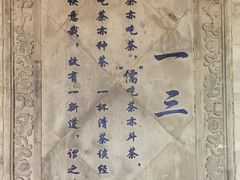 一三
茶亦吃茶，“儒吃茶亦斗茶，
吃茶亦种茶 一杯清茶谈经
意哉，故有一新道，谓之